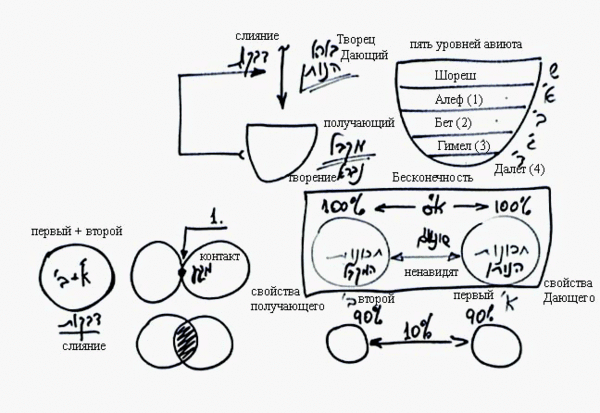 слияние
דבקות
Творец
בורא
Дающий
הנותן
получающий
מקבל
творение
נברא
пять уровней авиюта
Шореш
Алеф (1)
Бет (2)
Гимел (3)
Далет (4)
ש
א'
ב'
ג'
ד'
Бесконечность
100% 100%
שונאים
ненавидят
תכונות
המקבל
תכונות
הנותן
свойства
получающего
свойства
Дающего
ב' второй
первый א'
90% 10% 90%
первый + второй
א'+ב'
דבקות
слияние
1.
контакт
מגע